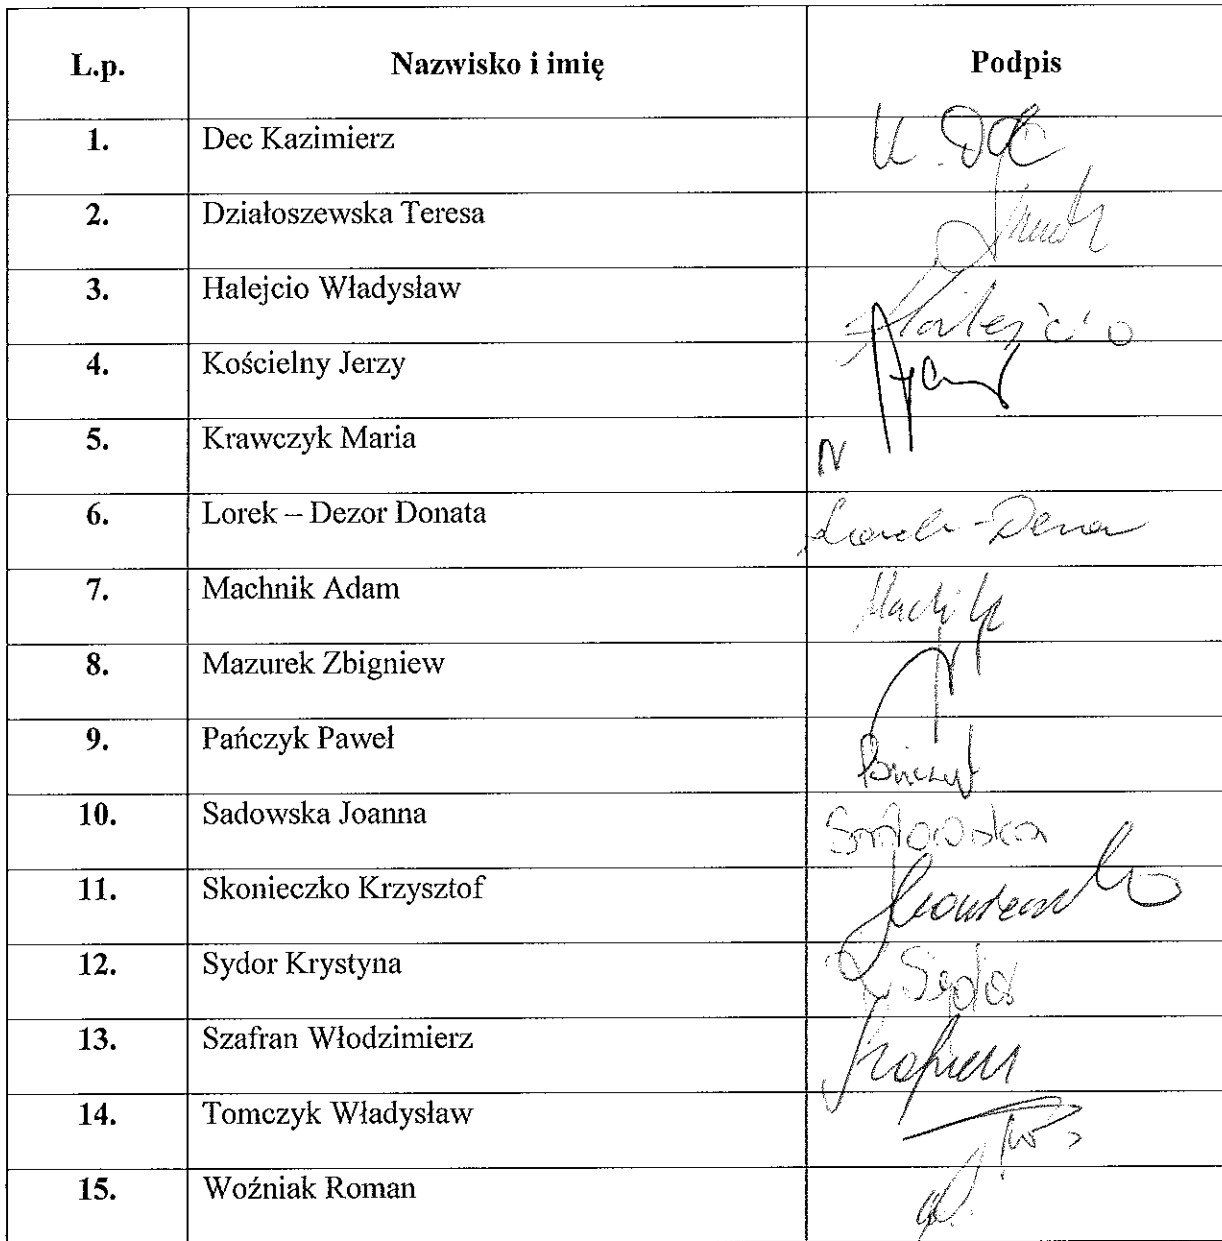 L.p. Nazwisko i imię Podpis
1. Dec Kazimierz K. Dec
2. Działoszewska Teresa
3. Halejcio Władysław Halejcio
4. Kościelny Jerzy
5. Krawczyk Maria N
6. Lorek – Dezor Donata Lorek-Dezor
7. Machnik Adam
8. Mazurek Zbigniew
9. Pańczyk Paweł Pańczyk
10. Sadowska Joanna Sadowska
11. Skonieczko Krzysztof
12. Sydor Krystyna Sydor
13. Szafran Włodzimierz Szafran
14. Tomczyk Władysław
15. Woźniak Roman